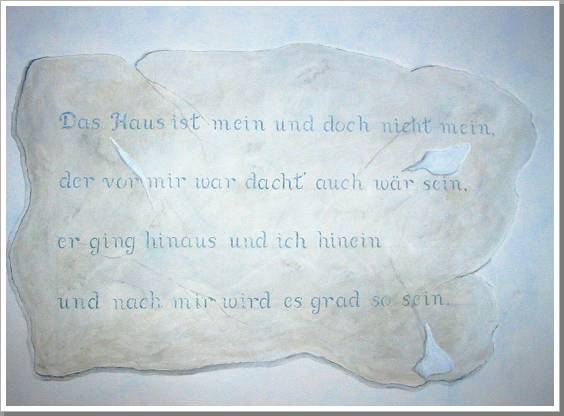 Das Haus ist mein und doch nicht mein,
der vor mir war dacht' auch wär sein,
er ging hinaus und ich hinein
und nach mir wird es grad so sein.